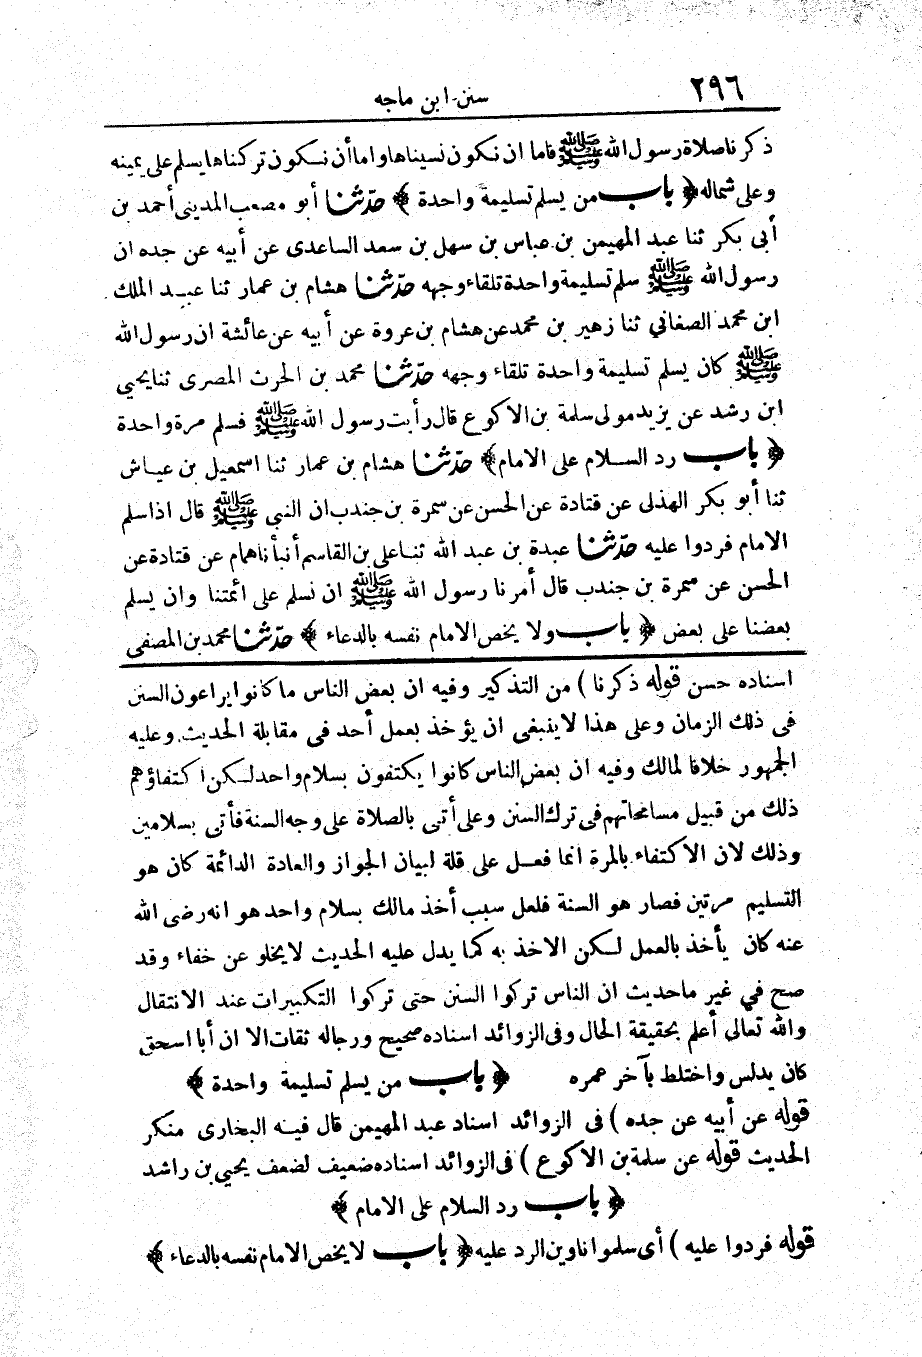 ٢٩٦
سنن ابن ماجه
ذكرنا صلاة رسول الله ﷺ فاما ان نكون نسيناها واما أن نكون تركناها يسلم على يمينه
وعلى شماله ﴿ باب من يسلم تسليمة واحدة ﴾ حدثنا أبو مصعب المدينى أحمد بن
أبى بكر ثنا عبد المهيمن بن عباس بن سهل بن سعد الساعدى عن أبيه عن جده ان
رسول الله ﷺ سلم تسليمة واحدة تلقاء وجهه حدثنا هشام بن عمار ثنا عبد الملك
ابن محمد الصغاني ثنا زهير بن محمد عن هشام بن عروة عن أبيه عن عائشة ان رسول الله
ﷺ كان يسلم تسليمة واحدة تلقاء وجهه حدثنا محمد بن الحرث المصرى ثنا يحيي
ابن رشد عن يزيد مولى سلمة بن الاكوع قال رأيت رسول الله ﷺ فسلم مرة واحدة
﴿ باب رد السلام على الامام ﴾ حدثنا هشام بن عمار ثنا اسمعيل بن عياش
ثنا أبو بكر الهذلى عن قتادة عن الحسن عن سمرة بن جندب ان النبي ﷺ قال اذا سلم
الامام فردوا عليه حدثنا عبدة بن عبد الله ثنا على بن القاسم أنبأنا همام عن قتادة عن
الحسن عن سمرة بن جندب قال أمرنا رسول الله ﷺ ان نسلم على ائمتنا وان يسلم
بعضنا على بعض ﴿ باب ولا يخص الامام نفسه بالدعاء ﴾ حدثنا محمد بن المصفى
اسناده حسن قوله ذكرنا ) من التذكير وفيه ان بعض الناس ما كانوا يراعون السنن
فى ذلك الزمان وعلى هذا لا ينبغى ان يؤخذ بعمل أحد فى مقابلة الحديث وعليه
الجمهور خلافا لمالك وفيه ان بعض الناس كانوا يكتفون بسلام واحد لكن اكتفاؤهم
ذلك من قبيل مسامحاتهم فى ترك السنن وعلى أتى بالصلاة على وجه السنة فأتى بسلامين
وذلك لان الاكتفاء بالمرة انما فعل على قلة لبيان الجواز والعادة الدائمة كان هو
التسليم مرتين فصار هو السنة فلعل سبب أخذ مالك بسلام واحد هو انه رضى الله
عنه كان يأخذ بالعمل لكن الاخذ به كما يدل عليه الحديث لا يخلو عن خفاء وقد
صح في غير ما حديث ان الناس تركوا السنن حتى تركوا التكبيرات عند الانتقال
والله تعالى أعلم بحقيقة الحال وفى الزوائد اسناده صحيح ورجاله ثقات الا ان أبا اسحق
كان يدلس واختلط بآخر عمره ﴿ باب من يسلم تسليمة واحدة ﴾
قوله عن أبيه عن جده ) فى الزوائد اسناد عبد المهيمن قال فيه البخارى منكر
الحديث قوله عن سلمة بن الاكوع ) فى الزوائد اسناده ضعيف لضعف يحيي بن راشد
﴿ باب رد السلام على الامام ﴾
قوله فردوا عليه ) أى سلموا ناوين الرد عليه ﴿ باب لا يخص الامام نفسه بالدعاء ﴾